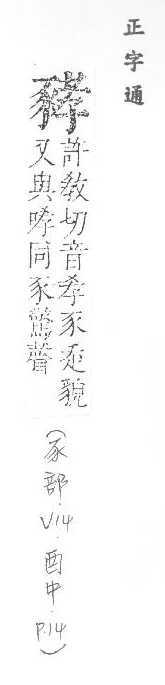 正字通
許教切音孝豕走貌
又與哮同豕驚聲
(豕部·V14·酉中·P.14)